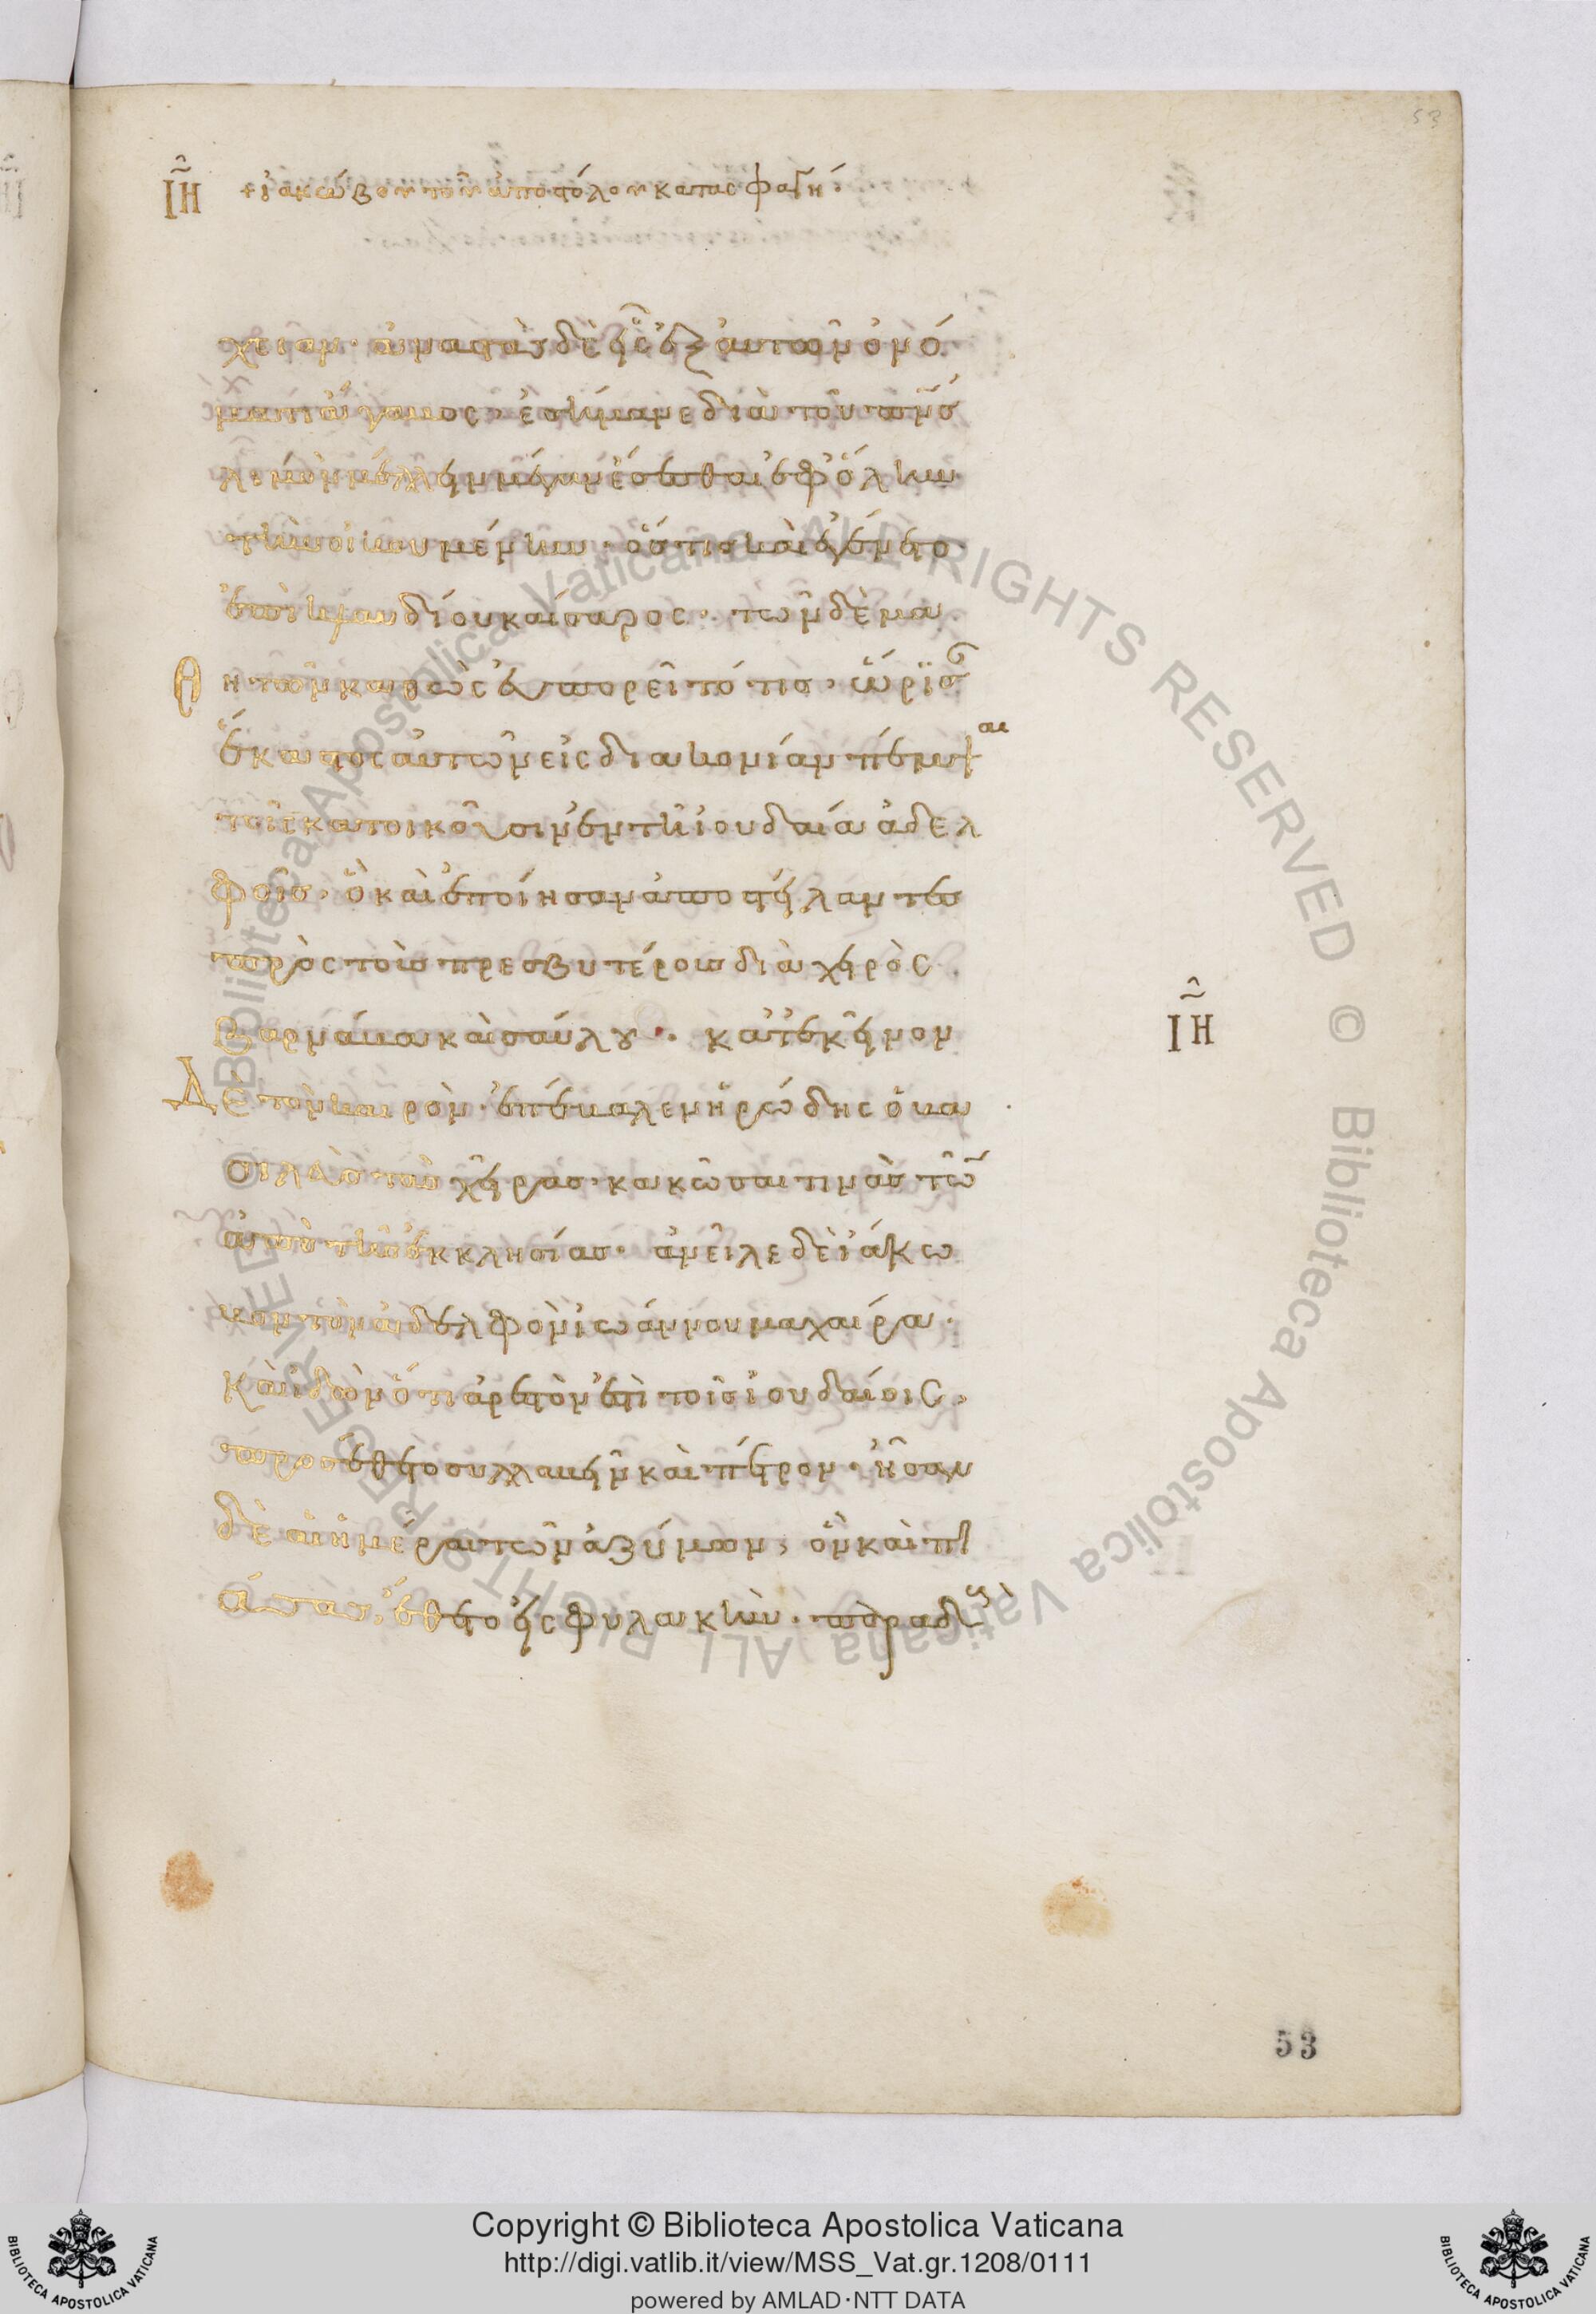 53
ΙΗ + ἰακώβου τοῦ ἀποστόλου κατασφαγή·
χειαν· ἀναστὰς δὲ εἷς ἐξ αὐτῶν ὀνό
ματι ἄγαβος, ἐσήμανε διὰ τοῦ πνσ
λιμὸν μέλλειν μέγαν ἔσεσθαι ἐφ' ὅλην
τὴν οἰκουμένην· ὅστις καὶ ἐγένετο
ἐπὶ κλαυδίου καίσαρος· τῶν δὲ μα
θητῶν καθὼς εὐπορεῖτό τις· ὥρισ
ἕκαστος αὐτῶν εἰς διακονίαν πέμψαι
τοῖς κατοικοῦσιν ἐν τῆ ἰουδαία ἀδελ
φοῖς· ὃ καὶ ἐποίησαν ἀποστείλαντες
πρὸς τοὺς πρεσβυτέρους διὰ χειρὸς
βαρνάβα καὶ σαύλου· κατ' ἐκεῖνον
ΙΗ
Δὲ τὸν καιρὸν· ἐπέβαλεν ἡρώδης ὁ βα
σιλεὺς τὰς χεῖρας· κακῶσαί τινας τῶ
ἀπὸ τῆς ἐκκλησίας· ἀνεῖλε δὲ ἰάκω
βον τὸν ἀδελφὸν ἰωάννου μαχαίρα·
καὶ ἰδὼν ὅτι ἀρεστόν ἐστι τοῖς ἰουδαίοις,
προσέθετο συλλαβεῖν καὶ πέτρον· ἦσαν
δὲ αἱ ἡμέραι τῶν ἀζύμων, ὃν καὶ πι
άσας, ἔθετο εἰς φυλακὴν· παραδοὺ
53
© Biblioteca Apostolica Vaticana ALL RIGHTS RESERVED © Biblioteca Apostolica Vaticana ALL RIGHTS RESERVED
Copyright © Biblioteca Apostolica Vaticana
http://digi.vatlib.it/view/MSS_Vat.gr.1208/0111
powered by AMLAD·NTT DATA
BIBLIOTECA APOSTOLICA VATICANA
BIBLIOTECA APOSTOLICA VATICANA